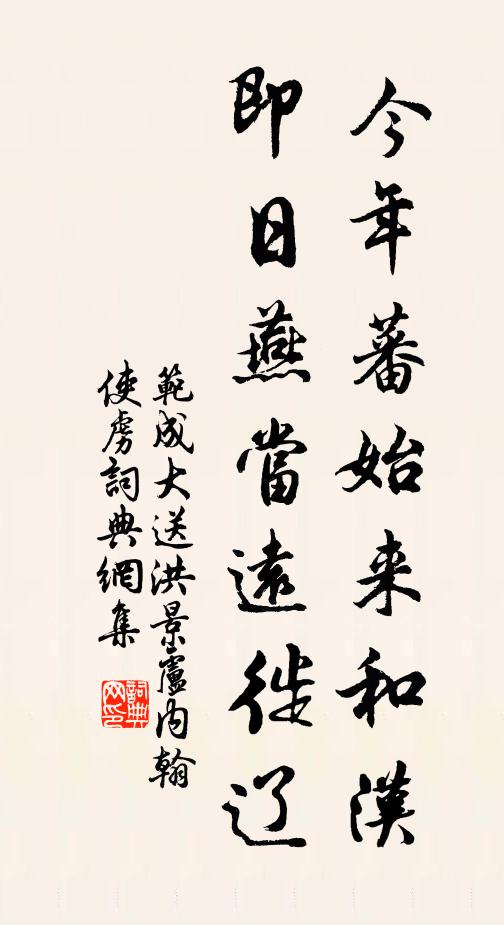 今年蕃始来和漢
即日燕當遠徙辽
範成大送洪景盧内翰
使虜詞典網集
詞典网印